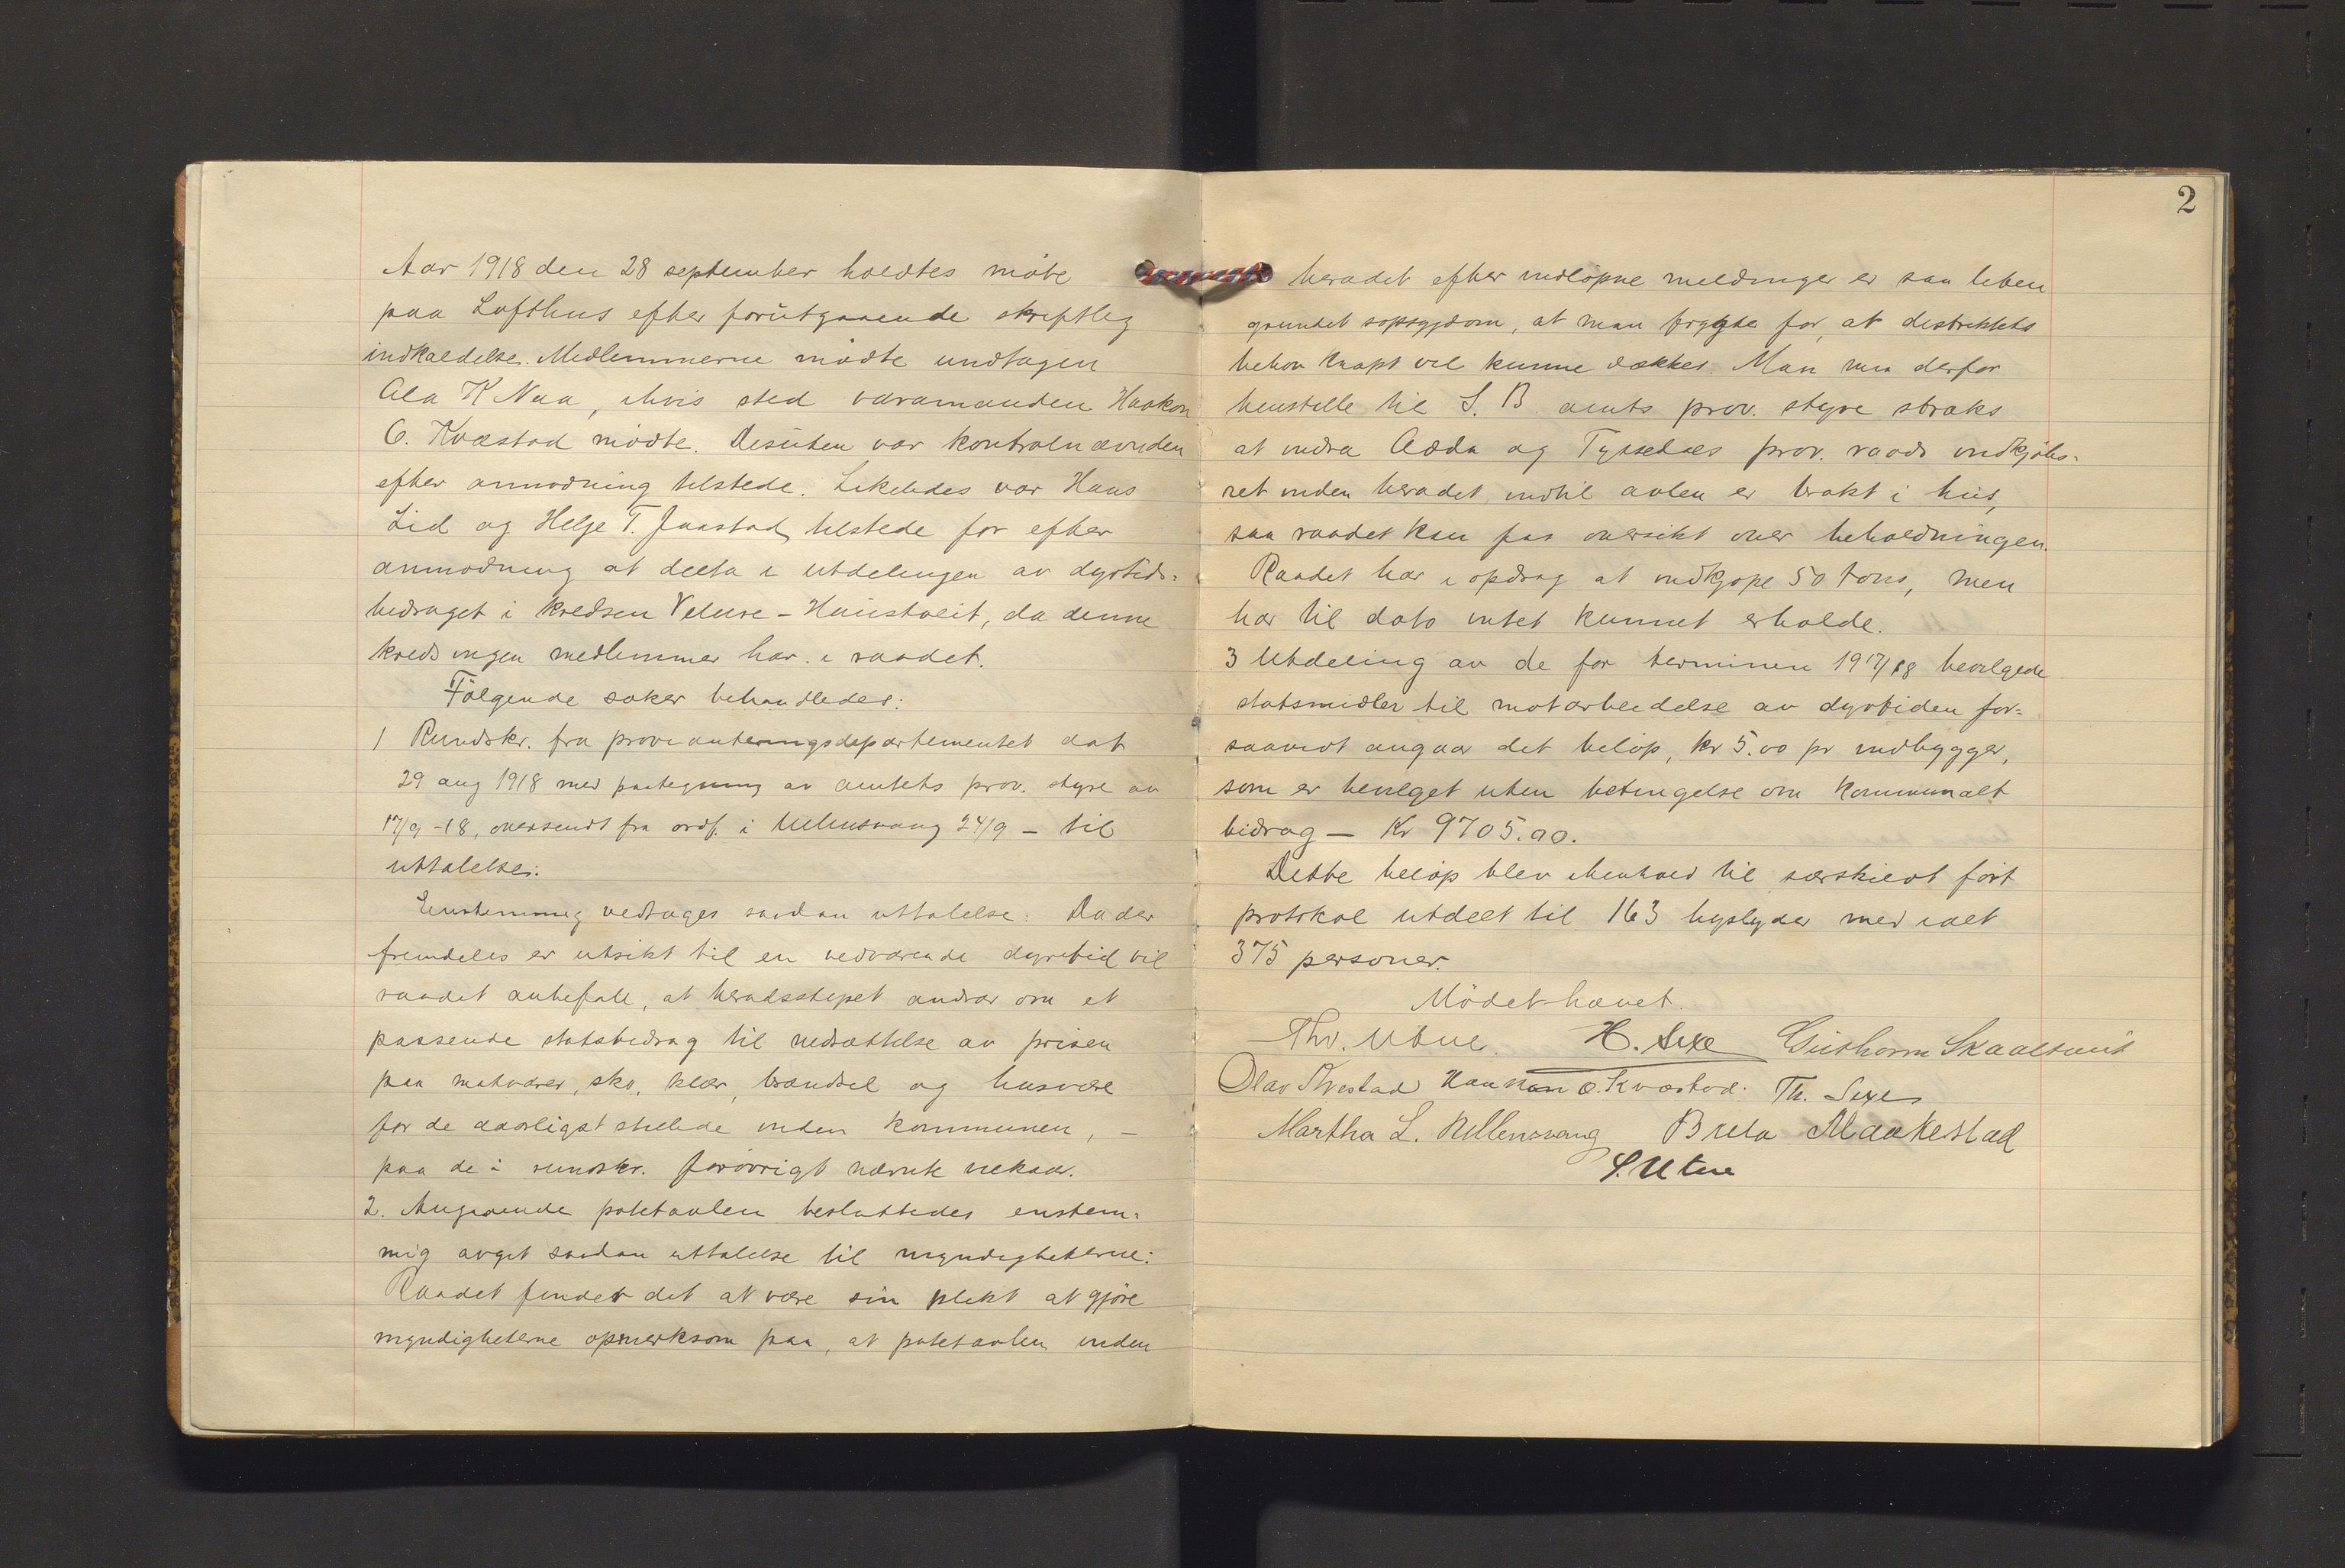 Aar 1918 den 28 september holdtes möte
paa Lofthus efter forutgaaende skriftleg
indkaldelse. Medlemmerne mödte undtagen
Ola K Naa, i hvis sted varamanden Haakon
O. Kvæstad mödte. Desuten var kontrolnævnden
efter anmodning tilstede. Likeledes var Hans
Lid og Helge T. Jaastad tilstede for efter
anmodning at delta i utdelingen av dyrtids-
bidraget i kredsen Velure - Haustveit, da denne
kreds ingen medlemmer har i raadet.
Fölgende saker behandledes:
1 Rundskr. fra provianteringsdepartementet dat
29 aug 1918 med paategning av amtets prov. styre av
17/9 -18, oversendt fra ordf. i Ullensvang 24/9 - til
uttalelse:
Enstemmig vedtages saadan uttalelse: Da der
fremdeles er utsikt til en vedvarende dyrtid vil
raadet anbefale, at heradsstyret andrar om et
passende statsbidrag til nedsættelse av prisen
paa matvarer, sko, klær, brændsel og husvære
for de daarligst stillede inden kommunen, -
paa de i rundskr. forövrigt nævnte vilkaar.
2. Angaaende potetavlen besluttedes enstem-
mig avgit saadan uttalelse til myndigheterne:
Raadet finder det at være sin plikt at gjöre
myndigheterne opmerksom paa, at potetavlen inden
2
heradet efter indlöpne meldinger er saa liten
grundet sopsygdom, at man frygter for, at distriktets
behov knapt vil kunne dækkes. Man maa derfor
henstille til S. B. amts prov. styre straks
at indra Odda og Tyssedals prov. raads indkjöbs-
ret inden heradet indtil avlen er brakt i hus,
saa raadet kan faa oversikt over beholdningen.
Raadet har i opdrag at indkjöpe 50 tons, men
har til dato intet kunnet erholde.
3 Utdeling av de for terminen 1917/18 bevilgede
statsmidler til motarbeidelse av dyrtiden for-
saavidt angaar det belöp, kr 5.00 pr indbygger,
som er bevilget uten betingelse om kommunalt
bidrag - Kr 9705.00.
Dette belöp blev i henhold til særskildt fört
protokol utdelt til 163 huslyder med ialt
375 personer.
Mödet hævet.
Thv. Utne. H. Sexe Guthorm Skaaltveit
Olav Avestad Haakon O. Kvæstad. Th. Sexe
Martha L. Ullensvang Brita Maakestad
S. Utne